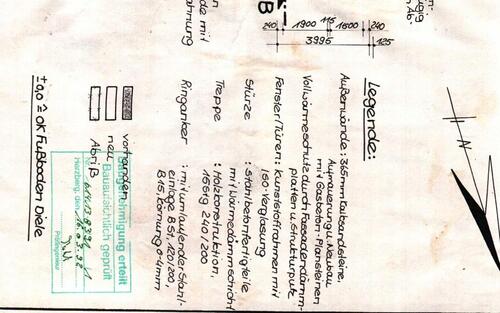 240 1900 115 1500 240
3995 125
B
Legende:
Außenwände: 365mm Kalksandsteine,
Aufmauerung u. Neubau
mit Gasbeton-Plansteinen
Vollwärmeschutz durch Fassadendämm-
platten u. Strukturputz
Fenster/Türen: Kunststoffrahmen mit
Iso-Verglasung
Stürze : Stahlbetonfertigteile
mit Wärmedämmschicht
Treppe : Holzkonstruktion,
16Stg 240/200
Ringanker : mit umlaufender Stahl-
einlage,
B15, Körnung 0-4mm
vorhanden
neu
Abriß
Baugenehmigung erteilt
Bauaufsichtlich geprüft
Herzberg, den
±0,0 ≙ OK Fußboden Diele
N